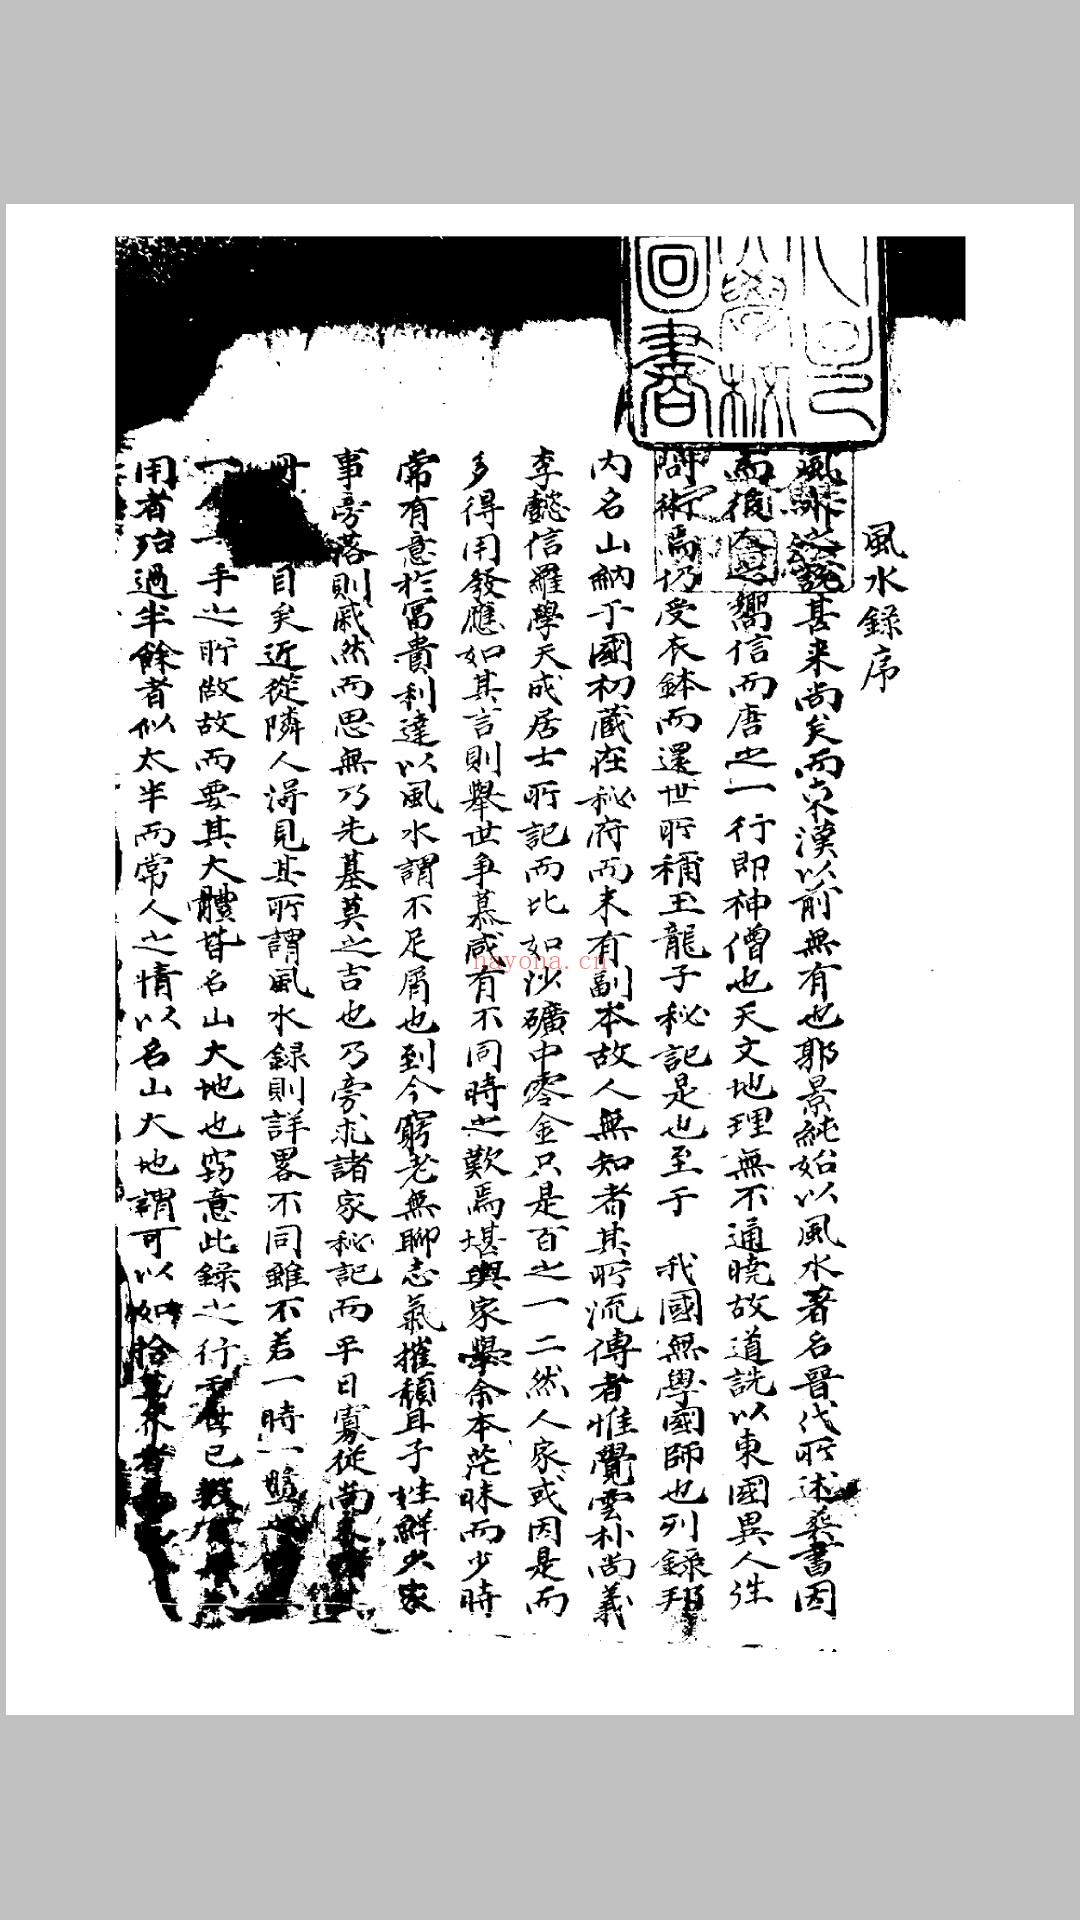 風水錄序
風水之說其来尚矣而東漢以前無有也郭景純始以風水著名晉代所述葬書因
而後人嚮信而唐之一行即神僧也天文地理無不通曉故道詵以東國異人往
問術焉仍受衣鉢而還世所稱玉龍子秘記是也至于 我國無學國師也列錄邦
内名山納于國初蔵在秘府而未有副本故人無知者其所流傳者惟覺雲朴尚義
李懿信羅學天成居士所記而比如沙礦中零金只是百之一二然人家或因是而
多得用發應如其言則舉世争慕咸有不同時之歎焉堪輿家學余本茫昧而少時
常有意於富貴利達以風水謂不足屑也到今窮老無聊志氣摧頹且子姓鮮少家
事旁落則戚然而思無乃先墓莫之吉也乃旁求諸家秘記而平日寡從尚未
目矣近從隣人得見其所謂風水録則詳畧不同雖不若一時一
一 手之所做故而要其大體皆名山大地也窃意此録之行于世已數
用者殆過半餘者似太半而常人之情以名山大地謂可以如拾芥者
nayona.cn
圖書